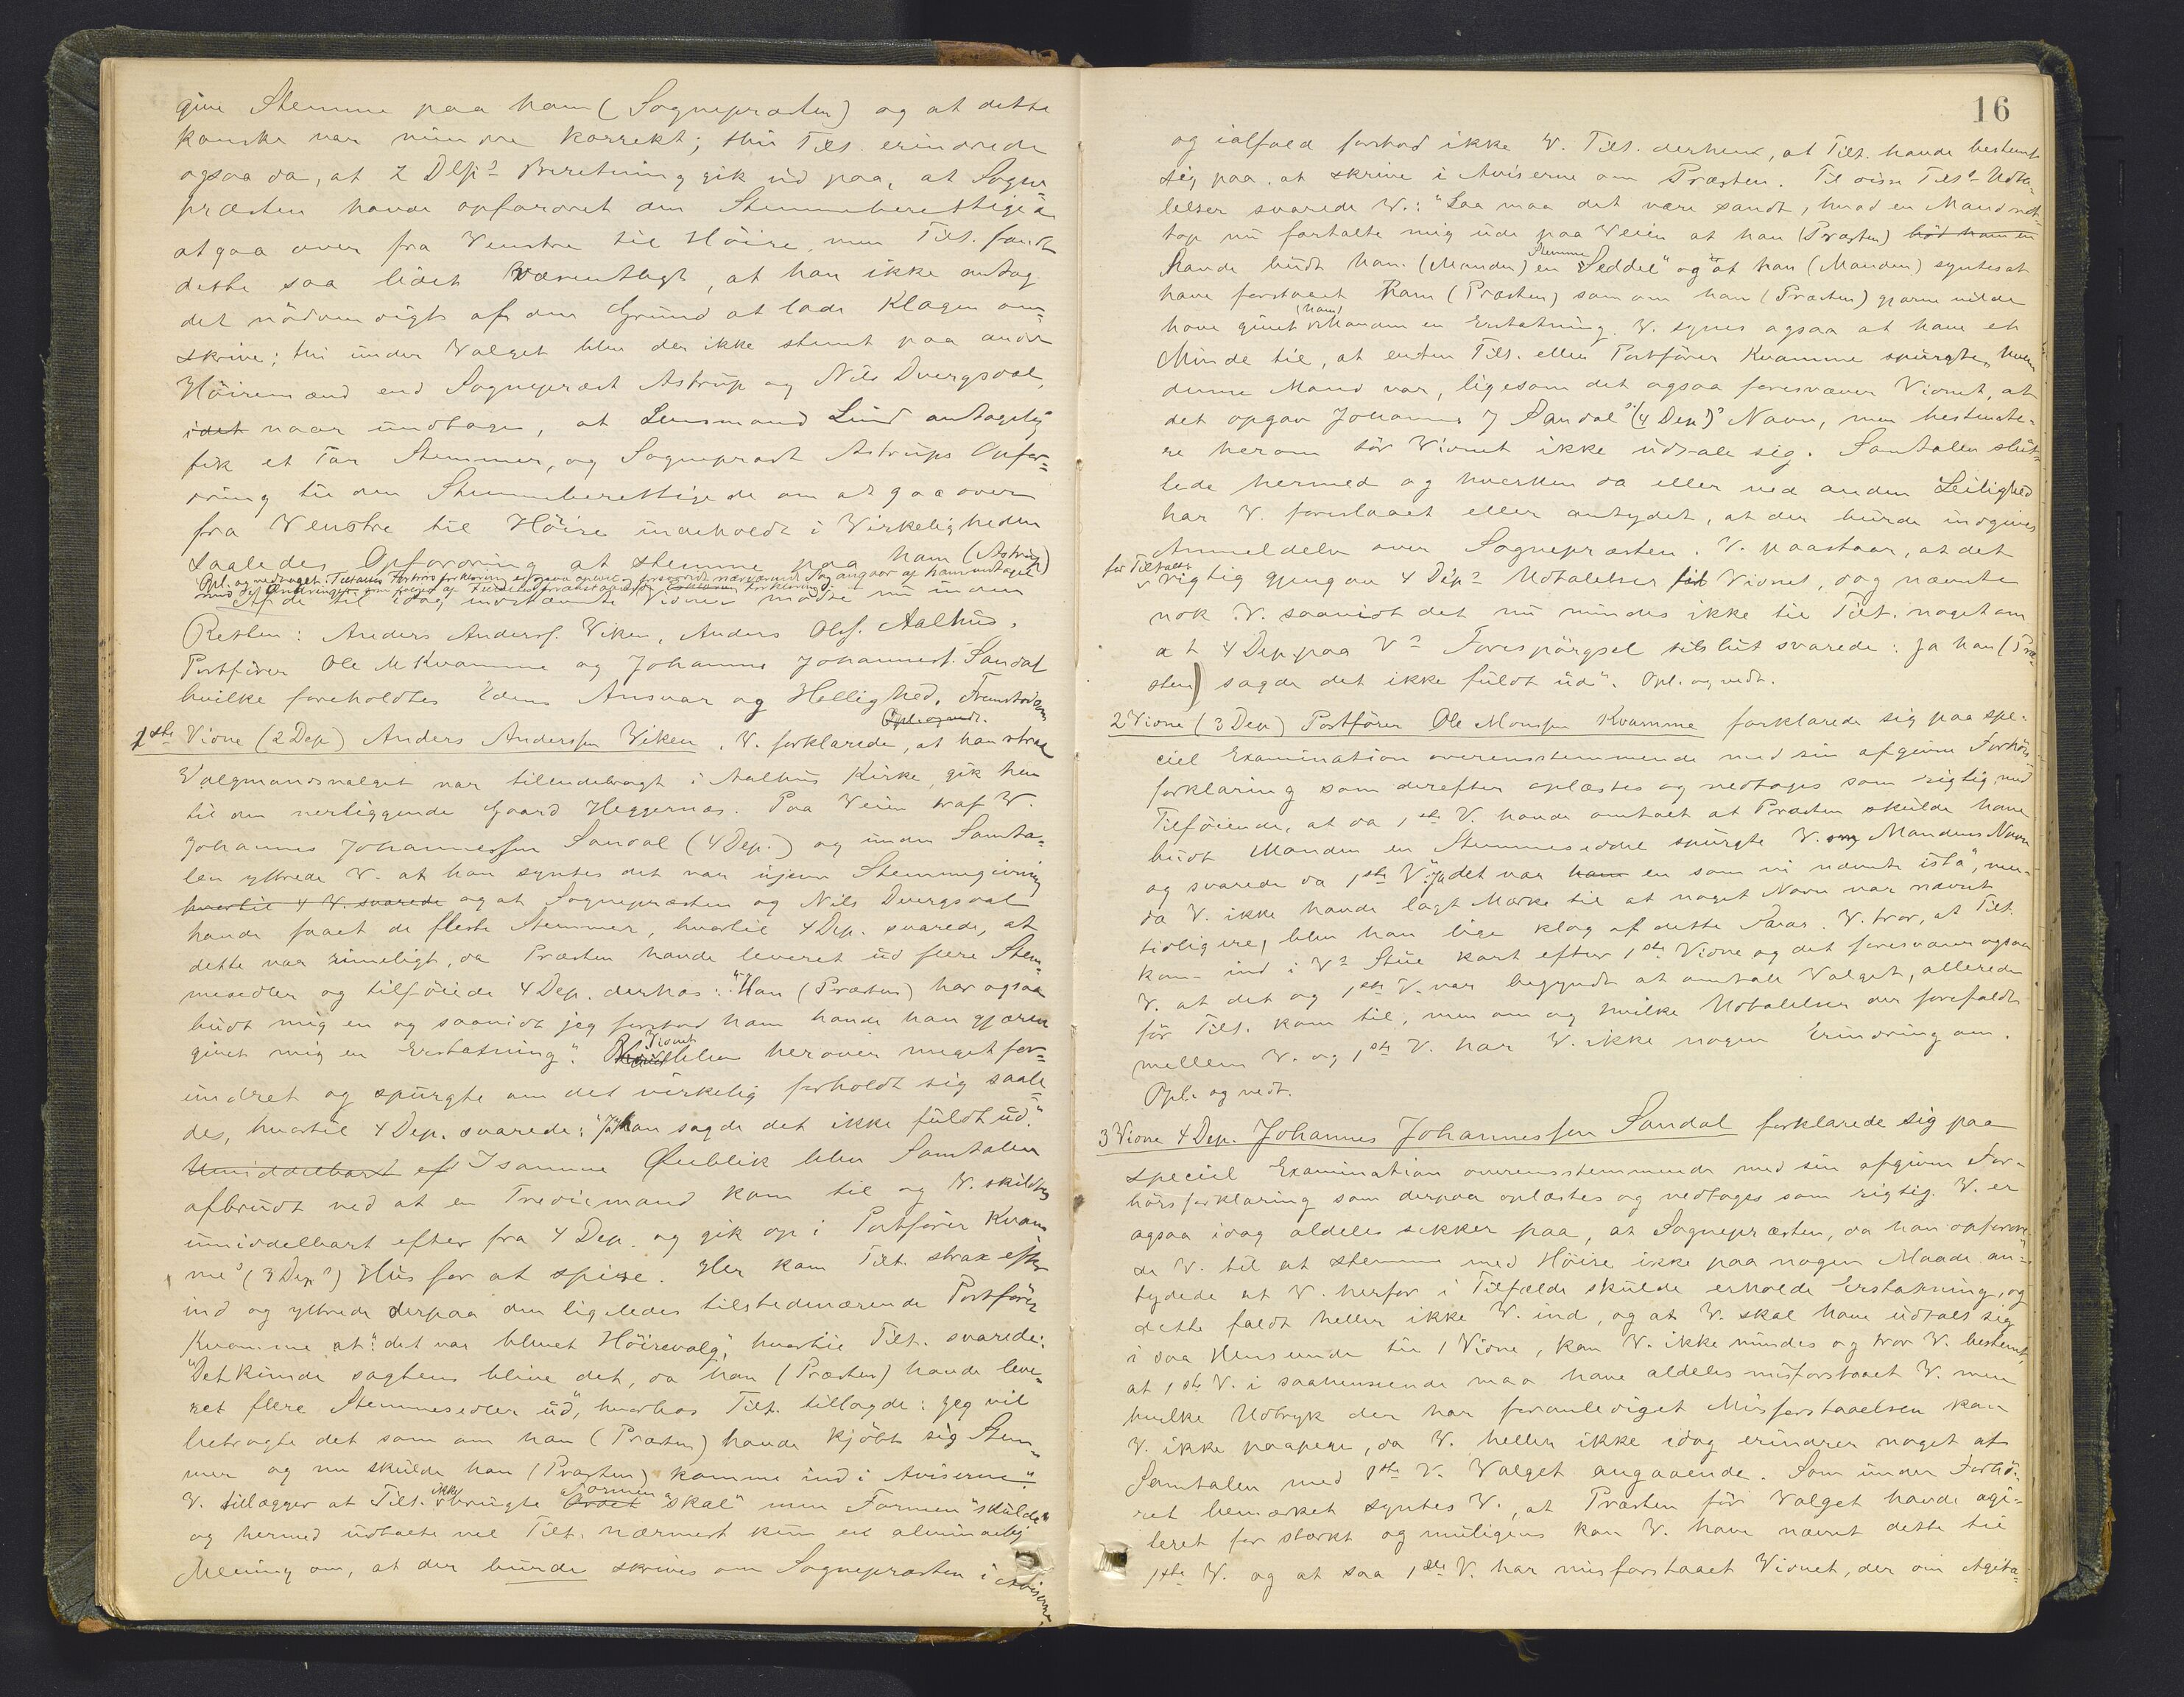 give Stemme paa ham (Sognepræsten) og at dette
kanske var mindre korrekt; thi Tilt. erindrede
ogsaa da, at 2 Dep<sup>s</sup> Beretning gik ud paa, at Sogne-
præsten havde opfordret den Stemmeberettigede
at gaa over fra Venstre til Höire, men Tilt. fandt
dette saa lidet væsentligt, at han ikke antog
det nödvendigt af den Grund at lade Klagen om-
skrive; thi under Valget blev der ikke stemt paa andre
Höiremænd end Sogneprest Astrup og Nils Dvergsdal,
idet naar undtages, at Lensmand Lund antagelig
fik et Par Stemmer, og Sogneprest Astrups Opfor=
dring til den Stemmeberettigede om at gaa over
fra Venstre til Höire indeholdt i Virkeligheden
saaledes Opfordring at stemme paa ham (Astrup)
Af de til idag indstævnte Vidner mödte nu inden
Retten: Anders Anders. Viken, Anders Ols. Aalhus,
Postförer Ole M Kvamme og Johannes Johannes. Sandal
hvilke foreholdtes Edens Ansvar og Hellighed. Fremstod som
Opl. og vedt.
1ste Vidne (2 Dep) Anders Anderssen Viken. V. forklarede, at han strax
Valgmandsvalget var tilendebragt i Aalhus Kirke, gik hen
til den nerliggende Gaard Heggernæs. Paa Veien traf V.
Johannes Johannessen Sandal (4 Dep.) og under Samta=
len yttrede V. at han syntes det var ujevn Stemmegivning
hvortil 4 V. svarede og at Sognepræsten og Nils Dvergsdal
havde faaet de fleste Stemmer, hvortil 4 Dep. svarede, at
dette var rimeligt, da Præsten havde leveret ud flere Stem-
mesedler og tilföiede 4 Dep. derhos: "Han (Præsten) har ogsaa
budt mig en og saavidt jeg forstod ham havde han gjærne
givet mig en Erstatning". Vidnet blev herover meget for=
undret og spurgte om det virkelig forholdt sig saale
des, hvortil 4 Dep. svarede: "Ja han sagde det ikke fuldt ud."
Umiddelbart ef I samme Öieblik blev Samtalen
afbrudt ved at en Trediemand kom til og V. skildtes
umiddelbart efter fra 4 Dep. og gik op i Postförer Kvam-
mes (3 Dep<sup>s</sup>) Hus for at spise. Her kom Tilt. strax efter
ind og yttrede derpaa den ligeledes tilstedeværende Postförer
Kvamme at: "det var blevet Höirevalg," hvortil Tilt. svarede:
"Det kunde sagtens blive det, da han (Præsten) havde leve-
ret flere Stemmesedler ud", hvorhos Tilt. tillagde: jeg vil
betragte det som om han (Præsten) havde kjöbt sig Stem-
mer og nu skulde han (Præsten) komme ind i Aviserne."
V. tillægger at Tilt. ikke brugte Formen "skal" men Formen "skulde"
og hermed udtalte vel Tilt. nærmest kun en almindelig
Mening om, at der burde skrives om Sognepræsten i Aviserne.
16
og ialfald forstod ikke V. Tilt. derhen, at Tilt. havde bestemt
sig paa at skrive i Aviserne om Præsten. Til disse Tilt<sup>s</sup> Udta-
lelser svarede V.: "Saa maa det være sandt, hvad en Mand net-
top nu fortalte mig ude paa Veien at han (Præsten) böd ham en
havde budt ham (Manden) en Stemme Seddel" og at han (Manden) syntes at
have forstaaet ham (Præsten) som om han (Præsten) gjærne vilde
have givet (ham) Manden en Erstatning. V. synes ogsaa at have et
Minde til, at enten Tilt. eller Postförer Kvamme spurgte, hvem
denne Mand var, ligesom det ogsaa foresvæver Vidnet, at
det opgav Johannes J Sandal's (4 Dep's) Navn, men bestemte-
re herom tör Vidnet ikke udtale sig. Samtalen slut-
tede hermed og hverken da eller ved anden Leilighed
har V. foreslaaet eller antydet, at der burde indgives
Anmeldelse over Sognepræsten. V. paastaar, at det
for Tiltalte
rigtig gjengav 4 Dep<sup>s</sup> Udtalelser til Vidnet, dog nævnte
nok V. saavidt det nu mindes ikke til Tilt. noget om
at 4 Dep. paa V<sup>s</sup> Forespörgsel tilslut svarede: Ja han (Præ-
sten) sagde det ikke fuldt ud". Opl. og vedt.
2 Vidne (3 Dep) Postförer Ole Monsen Kvamme forklarede sig paa spe-
ciel Examination overensstemmende med sin afgivne Forhörs-
forklaring som derefter oplæstes og vedtoges som rigtig med
Tilföiende, at da 1ste V. havde omtalt at Præsten skulde have
budt Manden en Stemmeseddel spurgte V. om Mandens Navn
og svarede da 1ste V: "Ja det var ham en som vi nævnte ista", men
da V. ikke havde lagt Mærke til at noget Navn var nævnt
tidligere, blev han lige klog af dette Svar. V. tror, at Tilt.
kom ind i V<sup>s</sup> Stue kort efter 1ste Vidne og det foresvæver ogsaa
V. at det og 1ste V. var begyndt at omtale Valget, allerede
för Tilt. kom til, men om og hvilke Udtalelser der forefaldt
mellem V. og 1ste V. har V. ikke nogen Erindring om.
Opl. og vedt.
3 Vidne 4 Dep. Johannes Johannessen Sandal forklarede sig paa
speciel Examination overensstemmende med sin afgivne For-
hörsforklaring som derpaa oplæstes og vedtoges som rigtig. V. er
ogsaa idag aldeles sikker paa, at Sognepræsten, da han opfordre-
de V. til at stemme med Höire ikke paa nogen Maade an-
tydede at V. herfor i Tilfælde skulde erholde Erstatning, og
dette faldt heller ikke V. ind, og at V. skal have udtalt sig
i saa Henseende til 1 Vidne, kan V. ikke mindes og tror V. bestemt,
at 1ste V. i saahenseende maa have aldeles misforstaaet V. men
hvilke Udtryk der har foranlediget Misforstaaelsen kan
V. ikke paapege, da V. heller ikke idag erindrer noget af
Samtalen med 1ste V. Valget angaaende. Som under Forhö-
ret bemærket syntes V., at Præsten för Valget havde agi-
teret for stærkt og muligens kan V. have nævnt dette til
1ste V. og at saa 1ste V. har misforstaaet Vidnet, der om Agita=